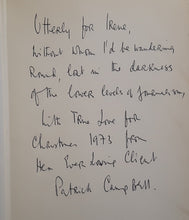 Utterly for Irene,
without whom I'd be wandering
Round, lost in the darkness
of the lower levels of Journalism,
With True Love for
Christmas 1973 from
Her Ever Loving Client
Patrick Campbell.